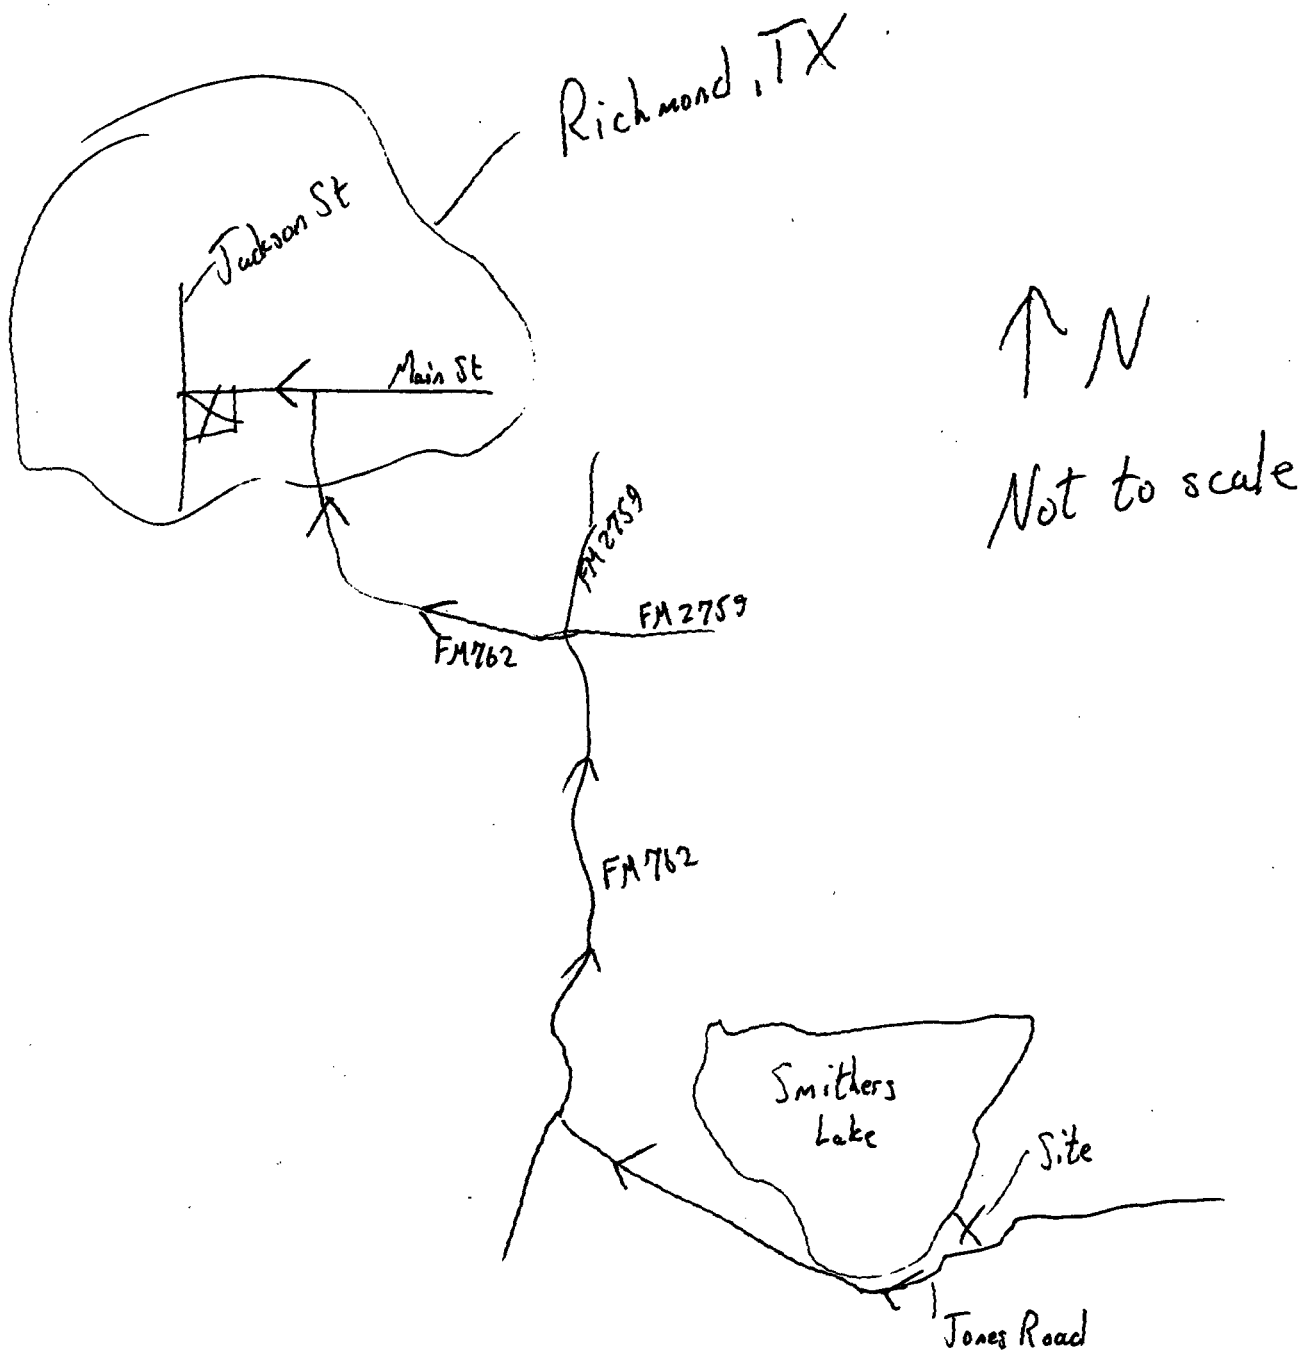 Richmond, TX
Jackson St
Main St
N
Not to scale
FM 2759
FM 2759
FM762
FM762
Smithers
Lake
Site
Jones Road